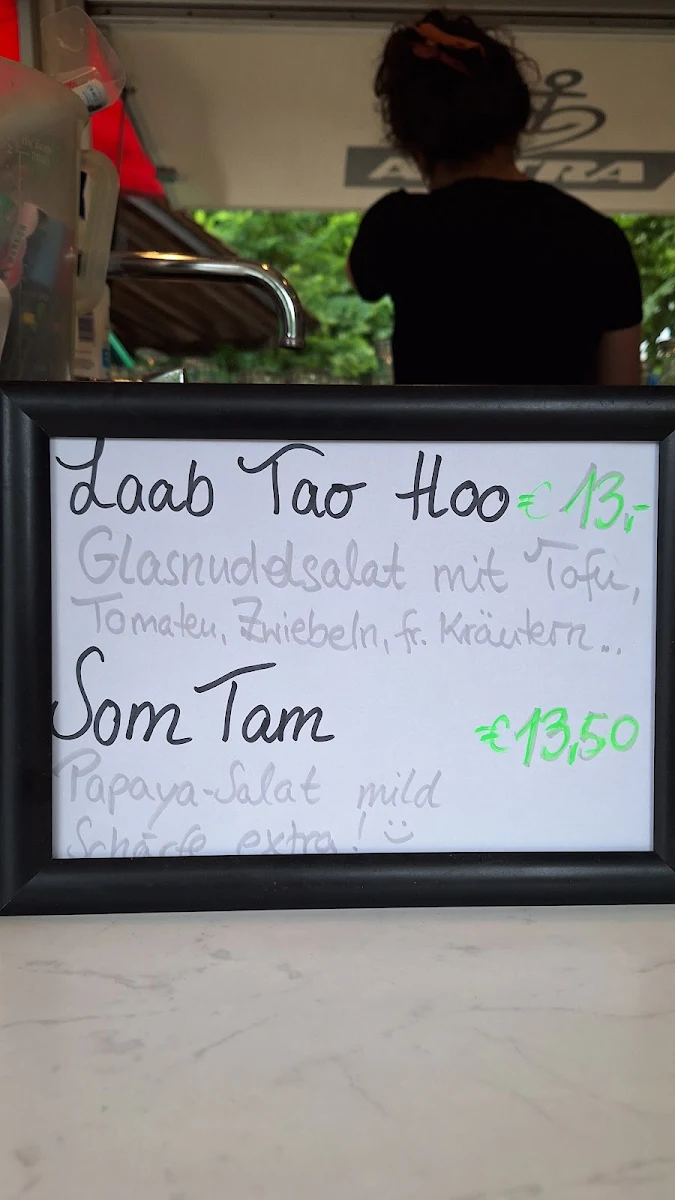 ASTRA
Laab Tao Hoo €13,-
Glasnudelsalat mit Tofu,
Tomaten, Zwiebeln, fr. Kräutern...
Som Tam €13,50
Papaya-Salat mild
Schärfe extra! :)